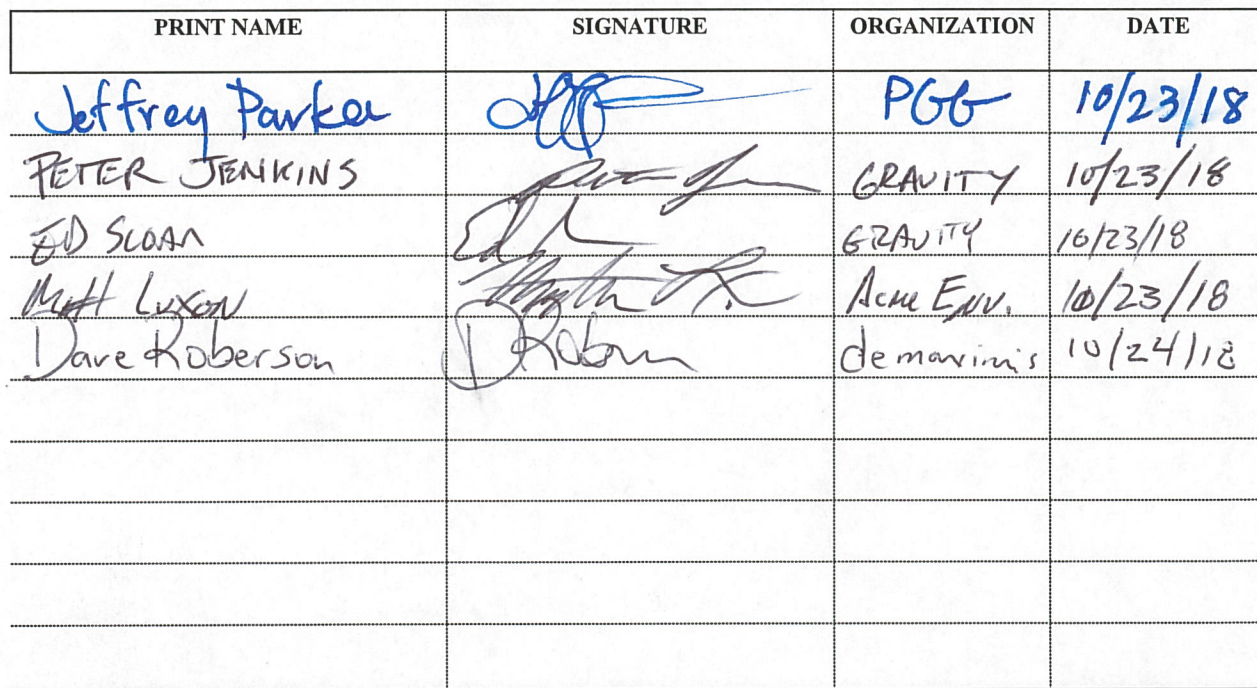 PRINT NAME SIGNATURE ORGANIZATION DATE
Jeffrey Parker PGG 10/23/18
PETER JENKINS GRAVITY 10/23/18
ED SLOAN GRAVITY 10/23/18
Matt Luxon Acme Env. 10/23/18
Dave Roberson demaximis 10/24/18